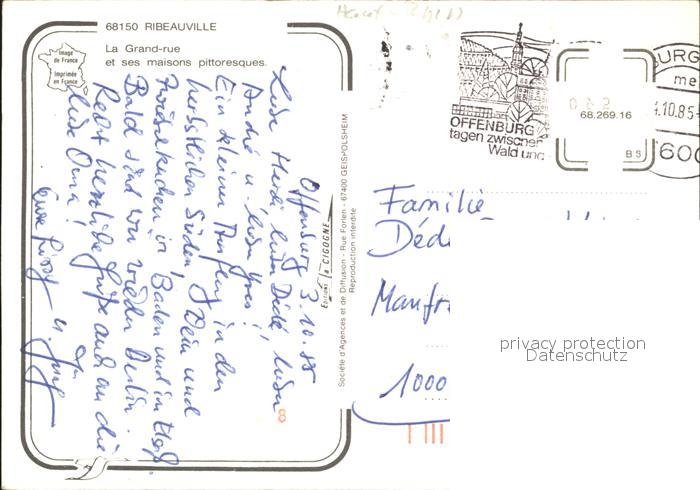 68150 RIBEAUVILLE
La Grand-rue
et ses maisons pittoresques.
Image
de France
Imprimée
en France
Offenburg 3.10.85
Liebe Heidi, lieber Dédé, lieber
André u. lieber Yves!
Ein kleiner Ausflug in den
herbstlichen Süden!, Wein und
Zwiebelkuchen in Baden und im Elsaß
Bald sind wir wieder Berlin.
Recht herzliche Grüße auch an die
liebe Oma!
Eure Sissy u. Jürg
Editions la CIGOGNE
Société d'Agences et de Diffusion - Rue Forlen - 67400 GEISPOLSHEIM
Reproduction interdite
OFFENBURG
tagen zwischen
Wald und
68.269.16
B S
URG
me
4.10.85
600
Familie
Dédé
Manfr
1000
privacy protection
Datenschutz
8